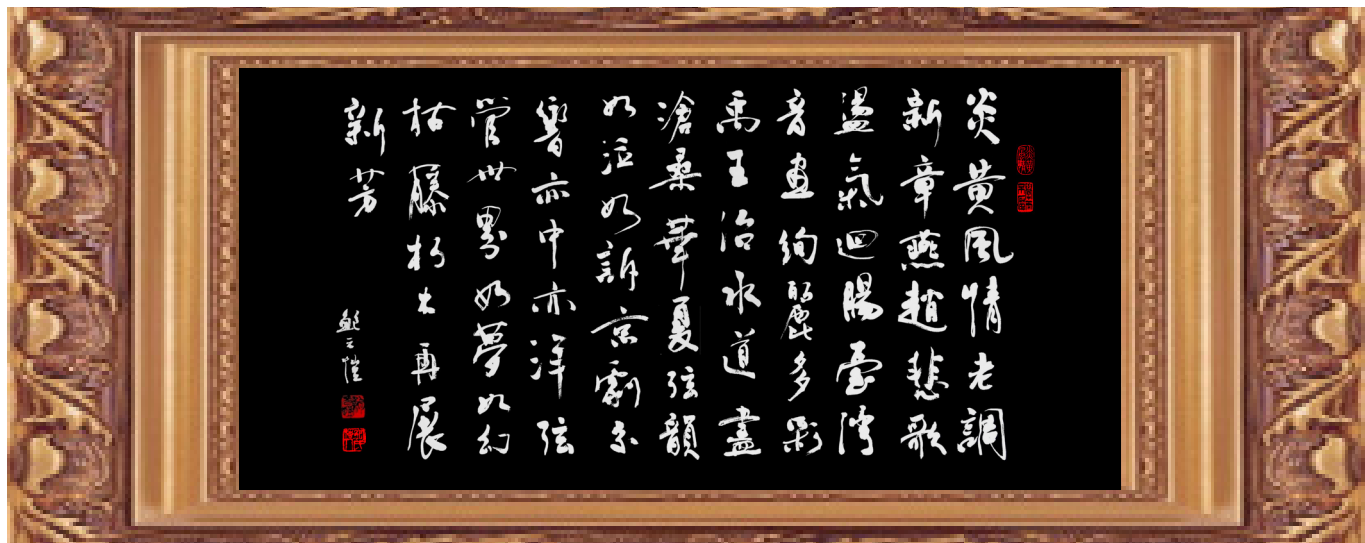 炎黄風情老調
新章燕趙悲歌
盪氣迴腸臺灣
音畫絢麗多彩
禹王治水道盡
滄桑華夏弦韻
如泣如訴京劇交
響亦中亦洋弦
管世界如夢如幻
枯藤朽木再展
新芳
鮑元愷